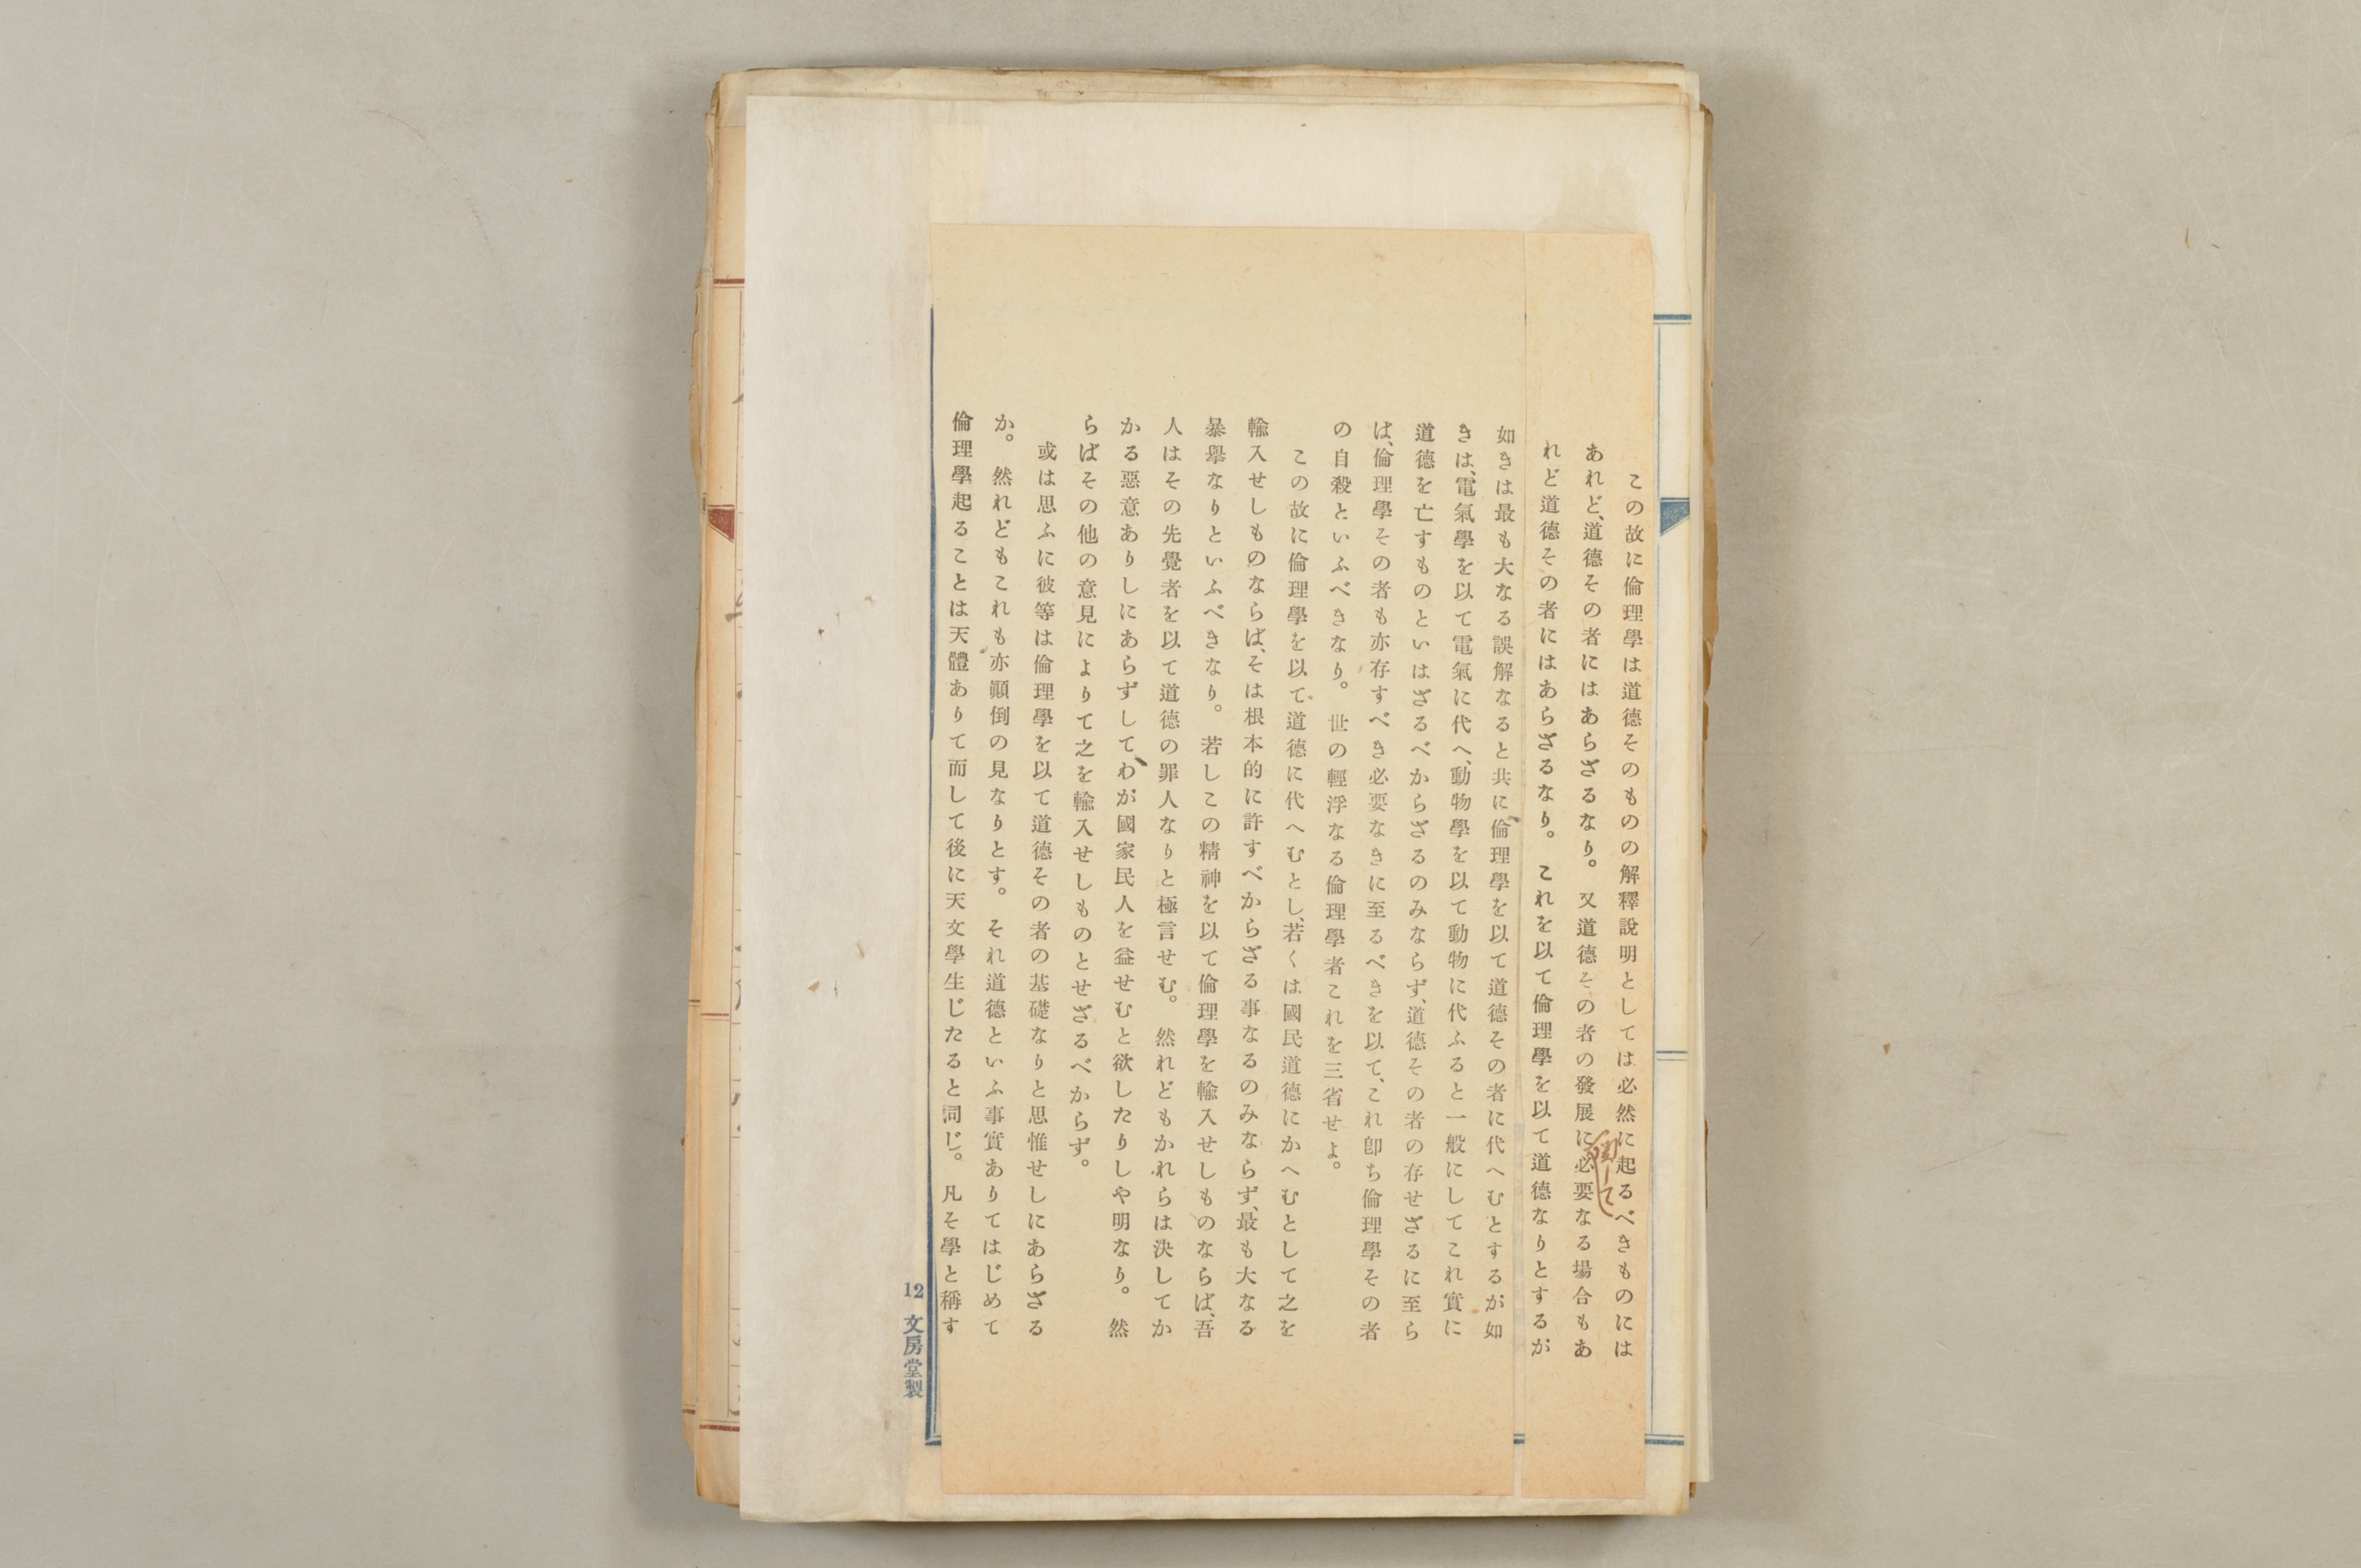 この故に倫理學は道德そのものの解釋說明としては必然に起るべきものには
あれど、道德その者にはあらざるなり。又道德その者の發展に必要なる場合もあ
れど道德その者にはあらざるなり。これを以て倫理學を以て道德なりとするが
如きは最も大なる誤解なると共に倫理學を以て道德その者に代へむとするが如
きは、電氣學を以て電氣に代へ、動物學を以て動物に代ふると一般にしてこれ實に
道德を亡すものといはざるべからざるのみならず、道德その者の存せざるに至ら
ば、倫理學その者も亦存すべき必要なきに至るべきを以て、これ卽ち倫理學その者
の自殺といふべきなり。世の輕浮なる倫理學者これを三省せよ。
この故に倫理學を以て道德に代へむとし、若くは國民道德にかへむとして之を
輸入せしものならば、そは根本的に許すべからざる事なるのみならず、最も大なる
暴擧なりといふべきなり。若しこの精神を以て倫理學を輸入せしものならば、吾
人はその先覺者を以て道德の罪人なりと極言せむ。然れどもかれらは決してか
かる惡意ありしにあらずして、わが國家民人を益せむと欲したりしや明なり。然
らばその他の意見によりて之を輸入せしものとせざるべからず。
或は思ふに彼等は倫理學を以て道德その者の基礎なりと思惟せしにあらざる
か。然れどもこれも亦顚倒の見なりとす。それ道德といふ事實ありてはじめて
倫理學起ることは天體ありて而して後に天文學生じたると同じ。凡そ學と稱す
12 文房堂製